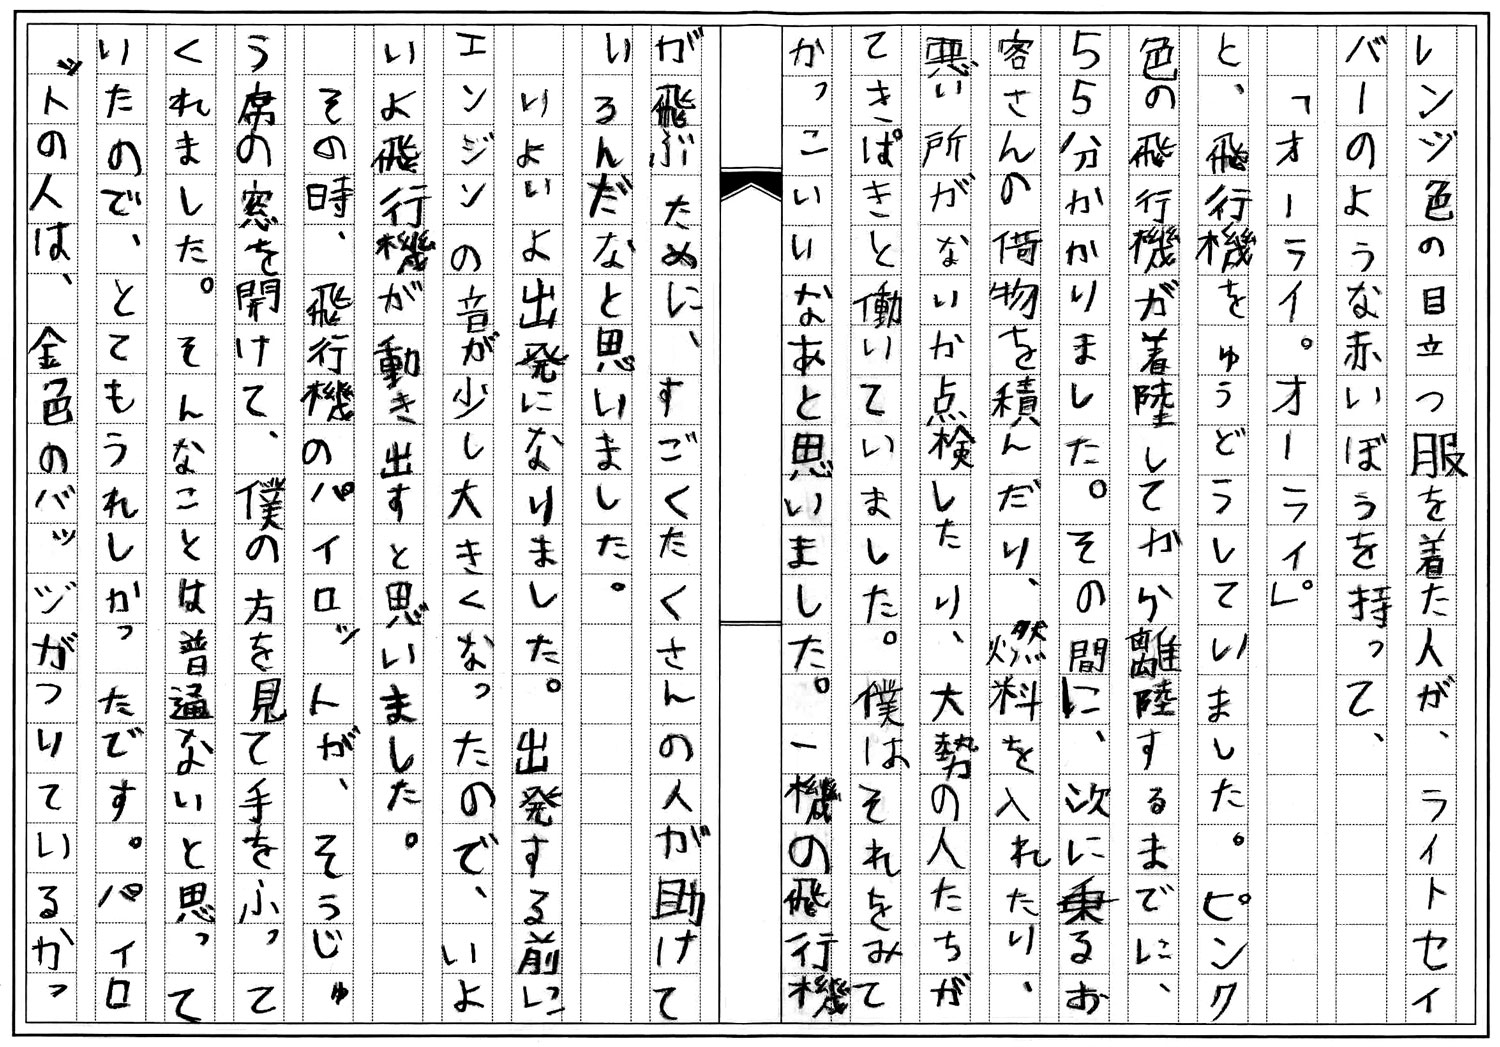 レンジ色の目立つ服を着た人が、ライトセイ
バーのような赤いぼうを持って、
「オーライ。オーライ。」
と、飛行機をゅうどうしていました。ピンク
色の飛行機が着陸してから離陸するまでに、
55分かかりました。その間に、次に乗るお
客さんの借物を積んだり、燃料を入れたり、
悪い所がないか点検したり、大勢の人たちが
てきぱきと働いていました。僕はそれをみて
かっこいいなあと思いました。一機の飛行機
が飛ぶために、すごくたくさんの人が助けて
いるんだなと思いました。
いよいよ出発になりました。出発する前に
エンジンの音が少し大きくなったので、いよ
いよ飛行機が動き出すと思いました。
その時、飛行機のパイロットが、そうじゅ
う席の窓を開けて、僕の方を見て手をふって
くれました。そんなことは普通ないと思って
いたので、とてもうれしかったです。パイロ
ットの人は、金色のバッヅがつりているかっ